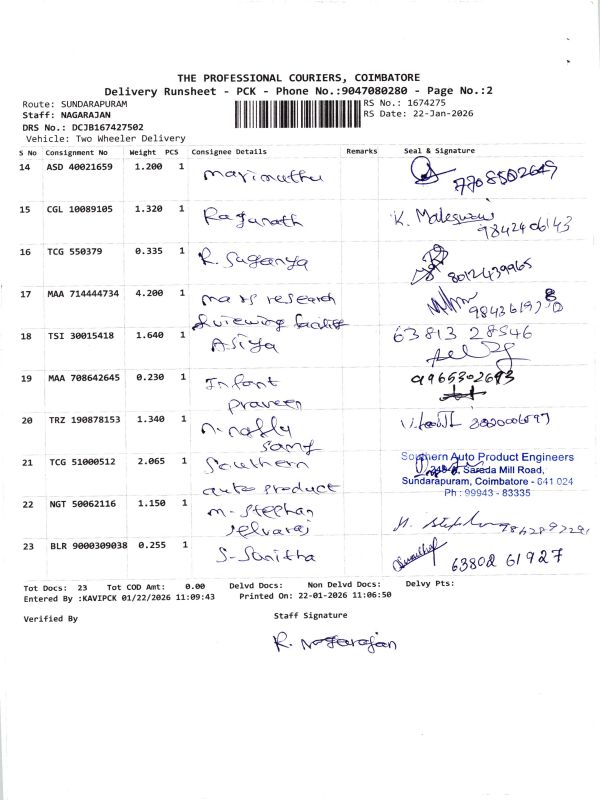 THE PROFESSIONAL COURIERS, COIMBATORE
Delivery Runsheet - PCK - Phone No.:9047080280 - Page No.:2
Route: SUNDARAPURAM
RS No.: 1674275
Staff: NAGARAJAN
RS Date: 22-Jan-2026
DRS No.: DCJB167427502
Vehicle: Two Wheeler Delivery
S No Consignment No Weight PCS Consignee Details Remarks Seal & Signature
14 ASD 40021659 1.200 1 Marimuthu
7708502649
15 CGL 10089105 1.320 1 Ragunath K. Maleswari
9842406143
16 TCG 550379 0.335 1 R. Suganya
8012439965
17 MAA 714444734 4.200 1 mars research
& viewing facility
18 TSI 30015418 1.640 1 Asiya
63813 28546
19 MAA 708642645 0.230 1 Infant
praveen
9965302693
20 TRZ 190878153 1.340 1
samy
21 TCG 51000512 2.065 1 Southern
auto product
Southern Auto Product Engineers
Sarada Mill Road,
Sundarapuram, Coimbatore - 641 024
Ph : 99943 - 83335
22 NGT 50062116 1.150 1 M. Stephan
selvaraj
23 BLR 9000309038 0.255 1 S-Sanitha
63802 61927
Tot Docs: 23 Tot COD Amt: 0.00 Delvd Docs: Non Delvd Docs: Delvy Pts:
Entered By :KAVIPCK 01/22/2026 11:09:43 Printed On: 22-01-2026 11:06:50
Verified By
Staff Signature
R. Nagarajan